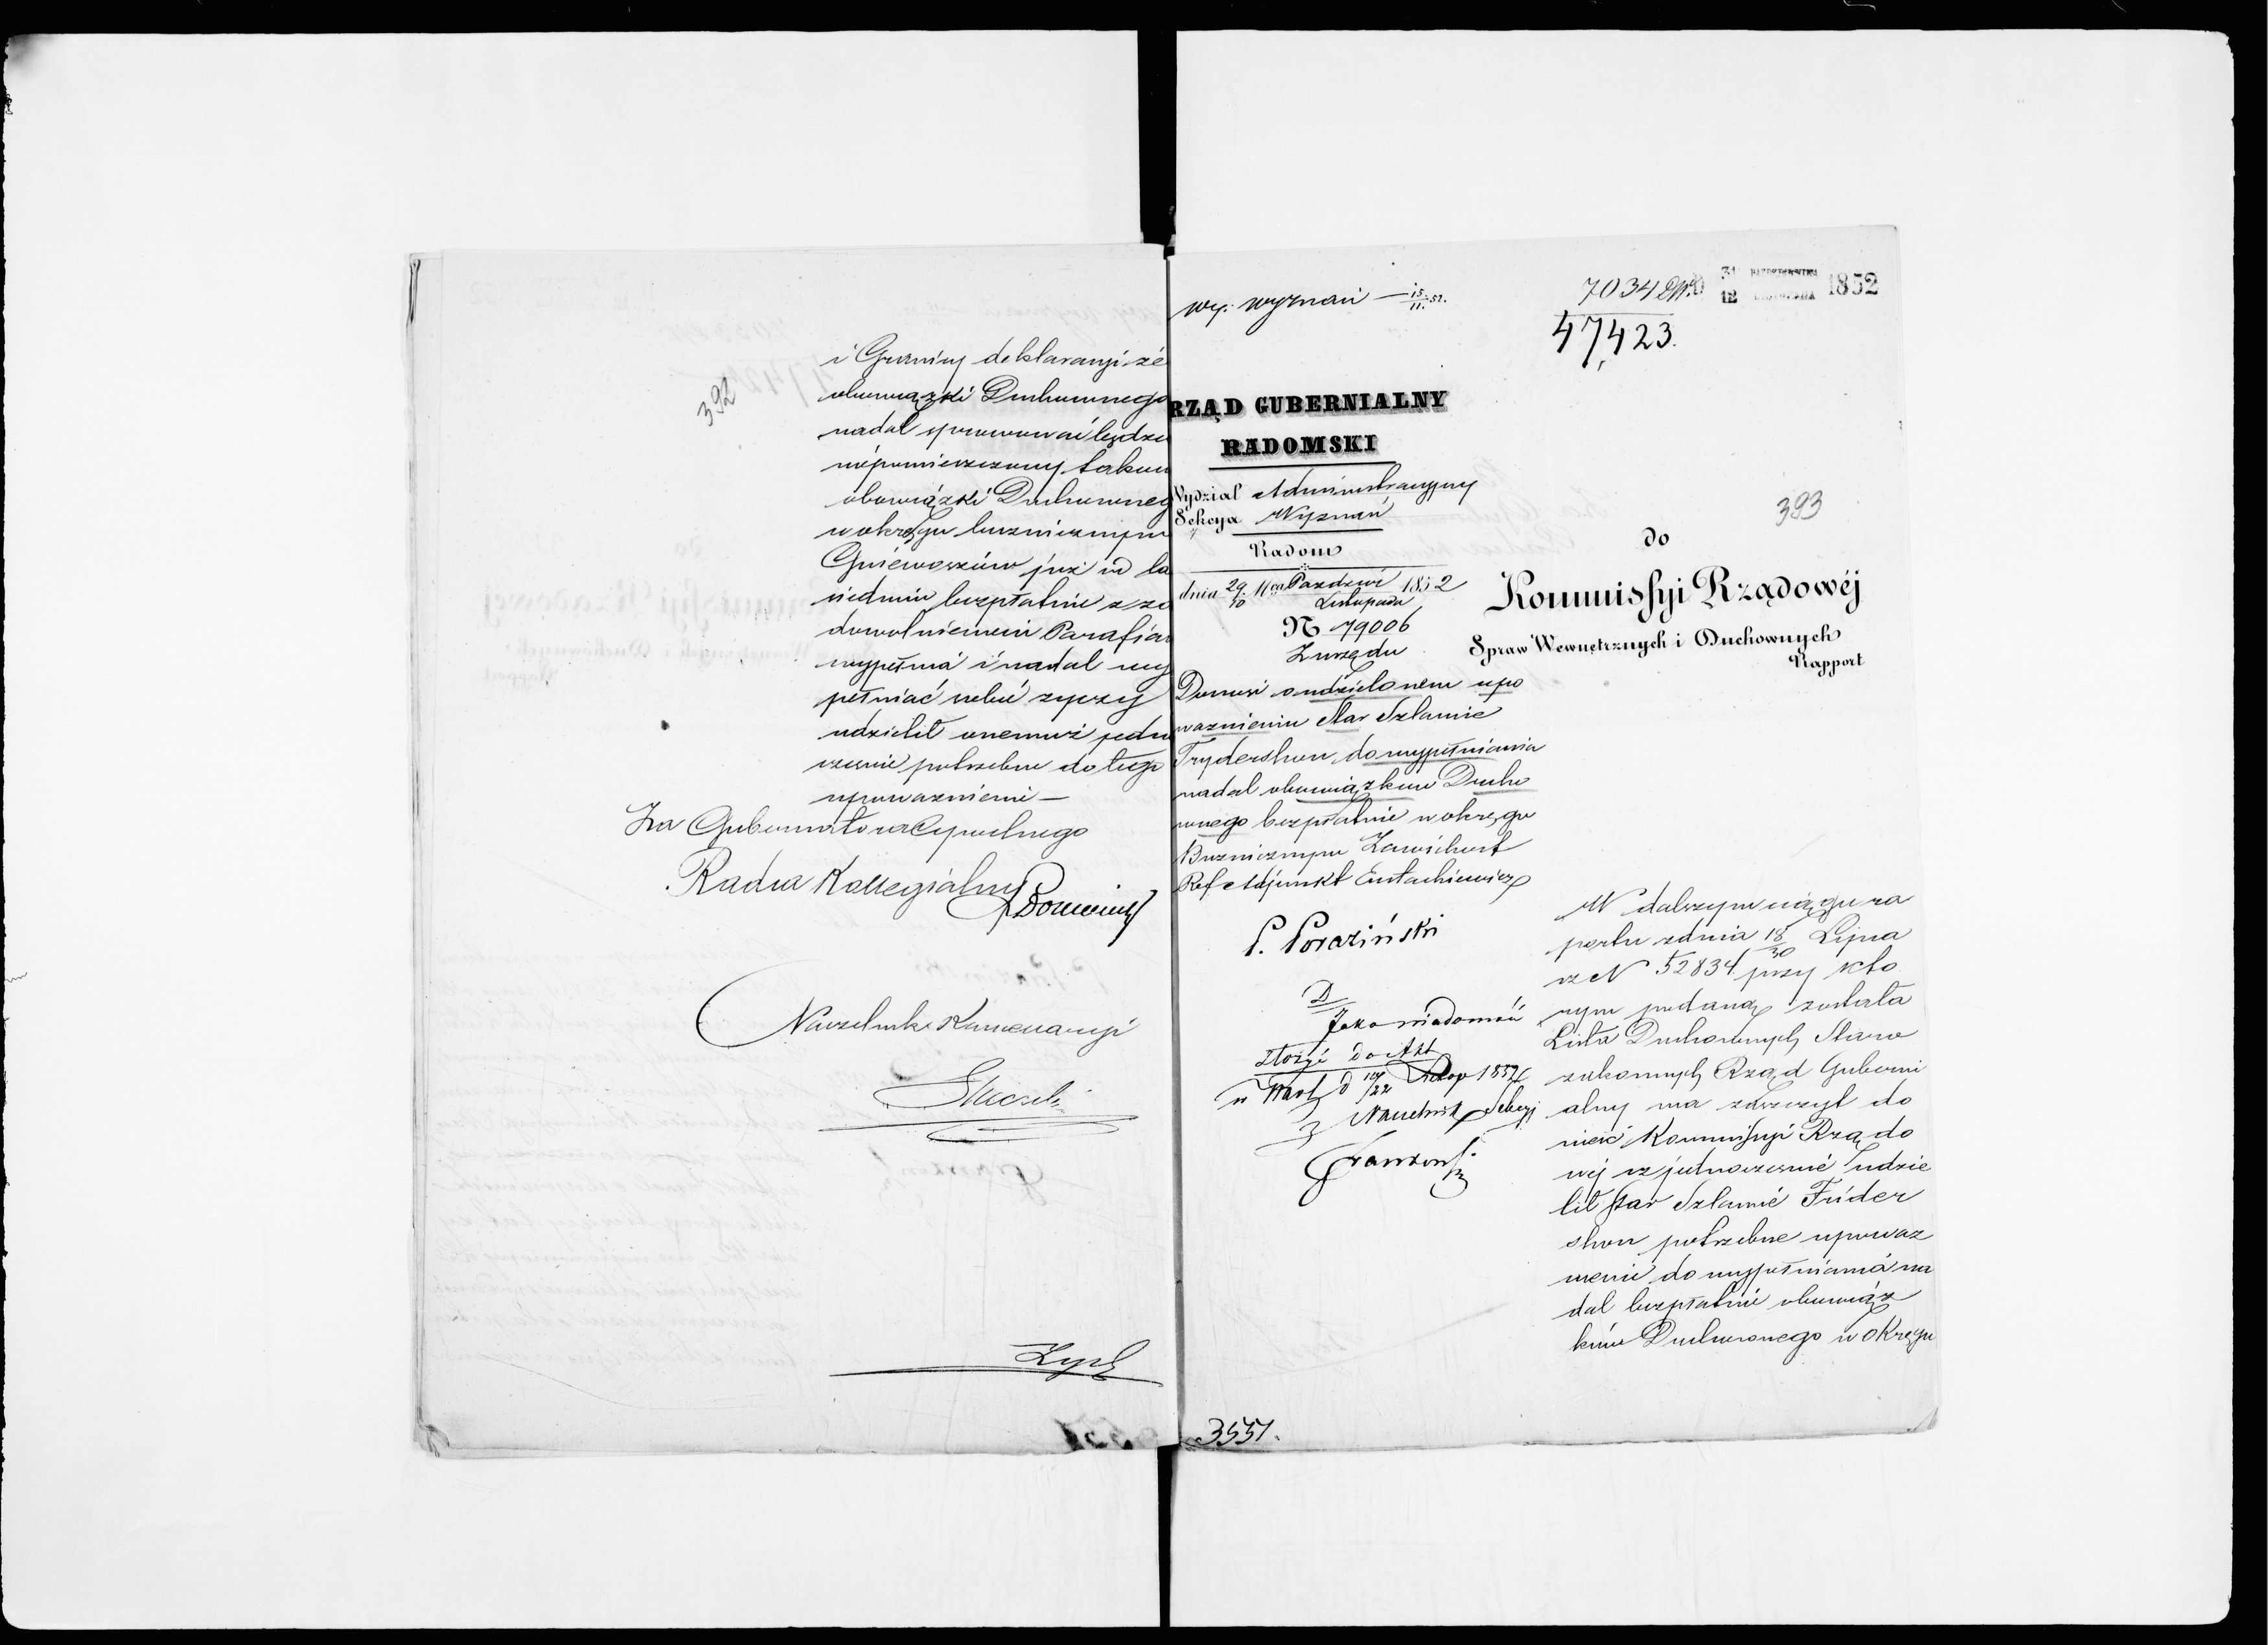 392
i Gminy deklaracyi że
obowiązki Duchownego
nadal sprawować będzie
niepomieszczony, takow
obowiązki Duchowneg
w okręgu bużnicznym
Gniewoszów już od la
siedmiu bezpłatnie z za
dowolnieniem Parafia
wypełnia i nadal wy
pełniać sobie życzy
udzielił onemuż jedno
cześnie potrzebne do tego
upoważnienie —
Za Gubernatora Cywilnego
Radca Kollegialny
Naczelnik Kancellaryi
Wy. wyznań — 15/11. 52.
7034
31 PAŹDZIERNIKA
12 LISTOPADA 1852
47,423.
RZĄD GUBERNIALNY
RADOMSKI
Wydział Administracyjny
Sekcya Wyznań
Radom
dnia 29/10 Pazdzier/Listopada 1852
N 79006
Z urzędu
Donosi o udzielonem upo
ważnieniu Star Szlamie
Frydershon do wypełniania
nadal obowiązków Ducho
wnego bezpłatnie w okręgu
Bużnicznym Zawichost
Ref Adjunkt Eustachiewicz
P. Poraziński
D
Jako wiadomość
złożyć do Akt
w Warsz d 10/22 Listop 1852
Naczelnik Sekcyi
393
do
Kommissyi Rządowéj
Spraw Wewnętrznych i Duchownych
Rapport
W dalszym ciągu ra
portu z dnia 18/30 Lipca
r z N 52834 przy któ
rym podaną została
Lista Duchownych Staro
zakonnych Rząd Guberni
alny ma zaszczyt do
nieść Kommissyi Rządo
wéj iż jednocześnie udzie
lił Star Szlamie Frider
shon potrzebne upoważ
nienie do wypełniania na
dal bezpłatnie obowiąz
ków Duchownego w Okręgu
3551.